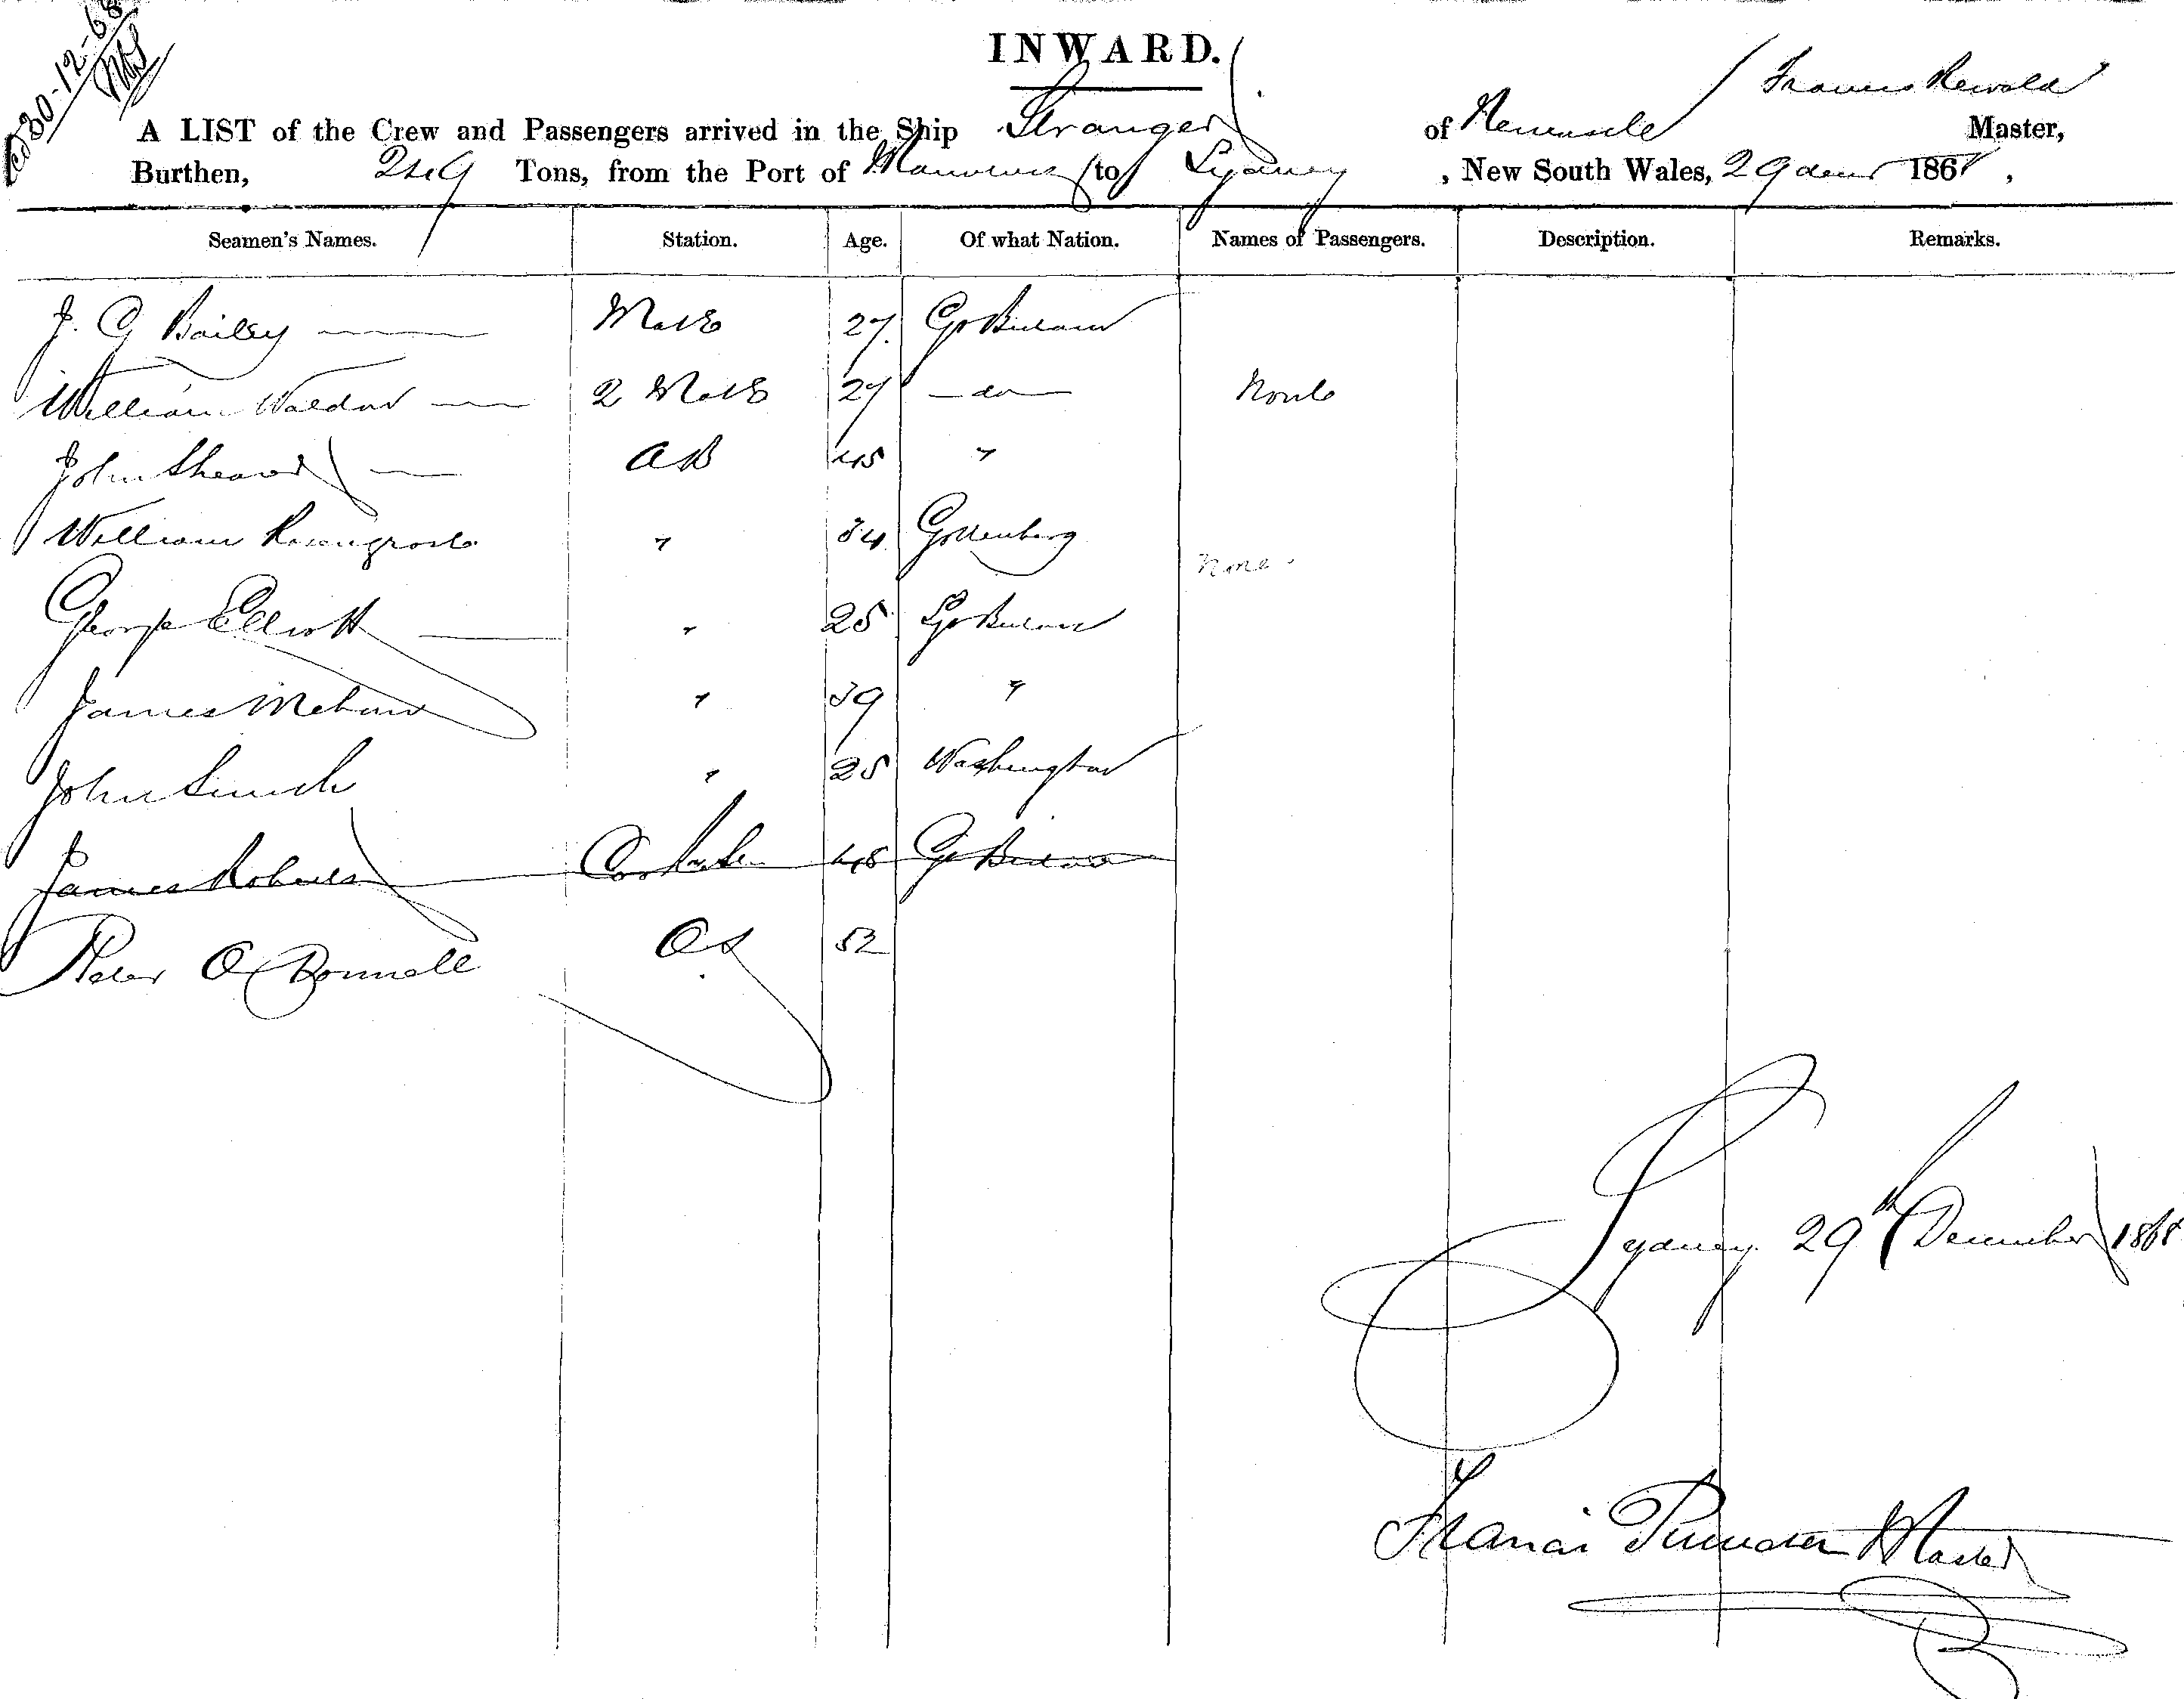 30-12-68
INWARD.
A LIST of the Crew and Passengers arrived in the Ship Stranger of Newcastle Francis Master,
Burthen, 249 Tons, from the Port of to Sydney , New South Wales, 29 186 ,
Seamen's Names. Station. Age. Of what Nation. Names of Passengers. Description. Remarks.
J. G Bailey Mate 27 Gt Britain
William Waldon 2 Mate 27 do None
John Sheared AB 45 "
William " 34 Gottenberg
None
George Elliott " 25 Gt Britain
James " 39 "
John " 25 Washington
James Roberts Cook 48 Gt Britain
Peter O Donnell OS 52
Sydney 29th December 1868
Francis Master